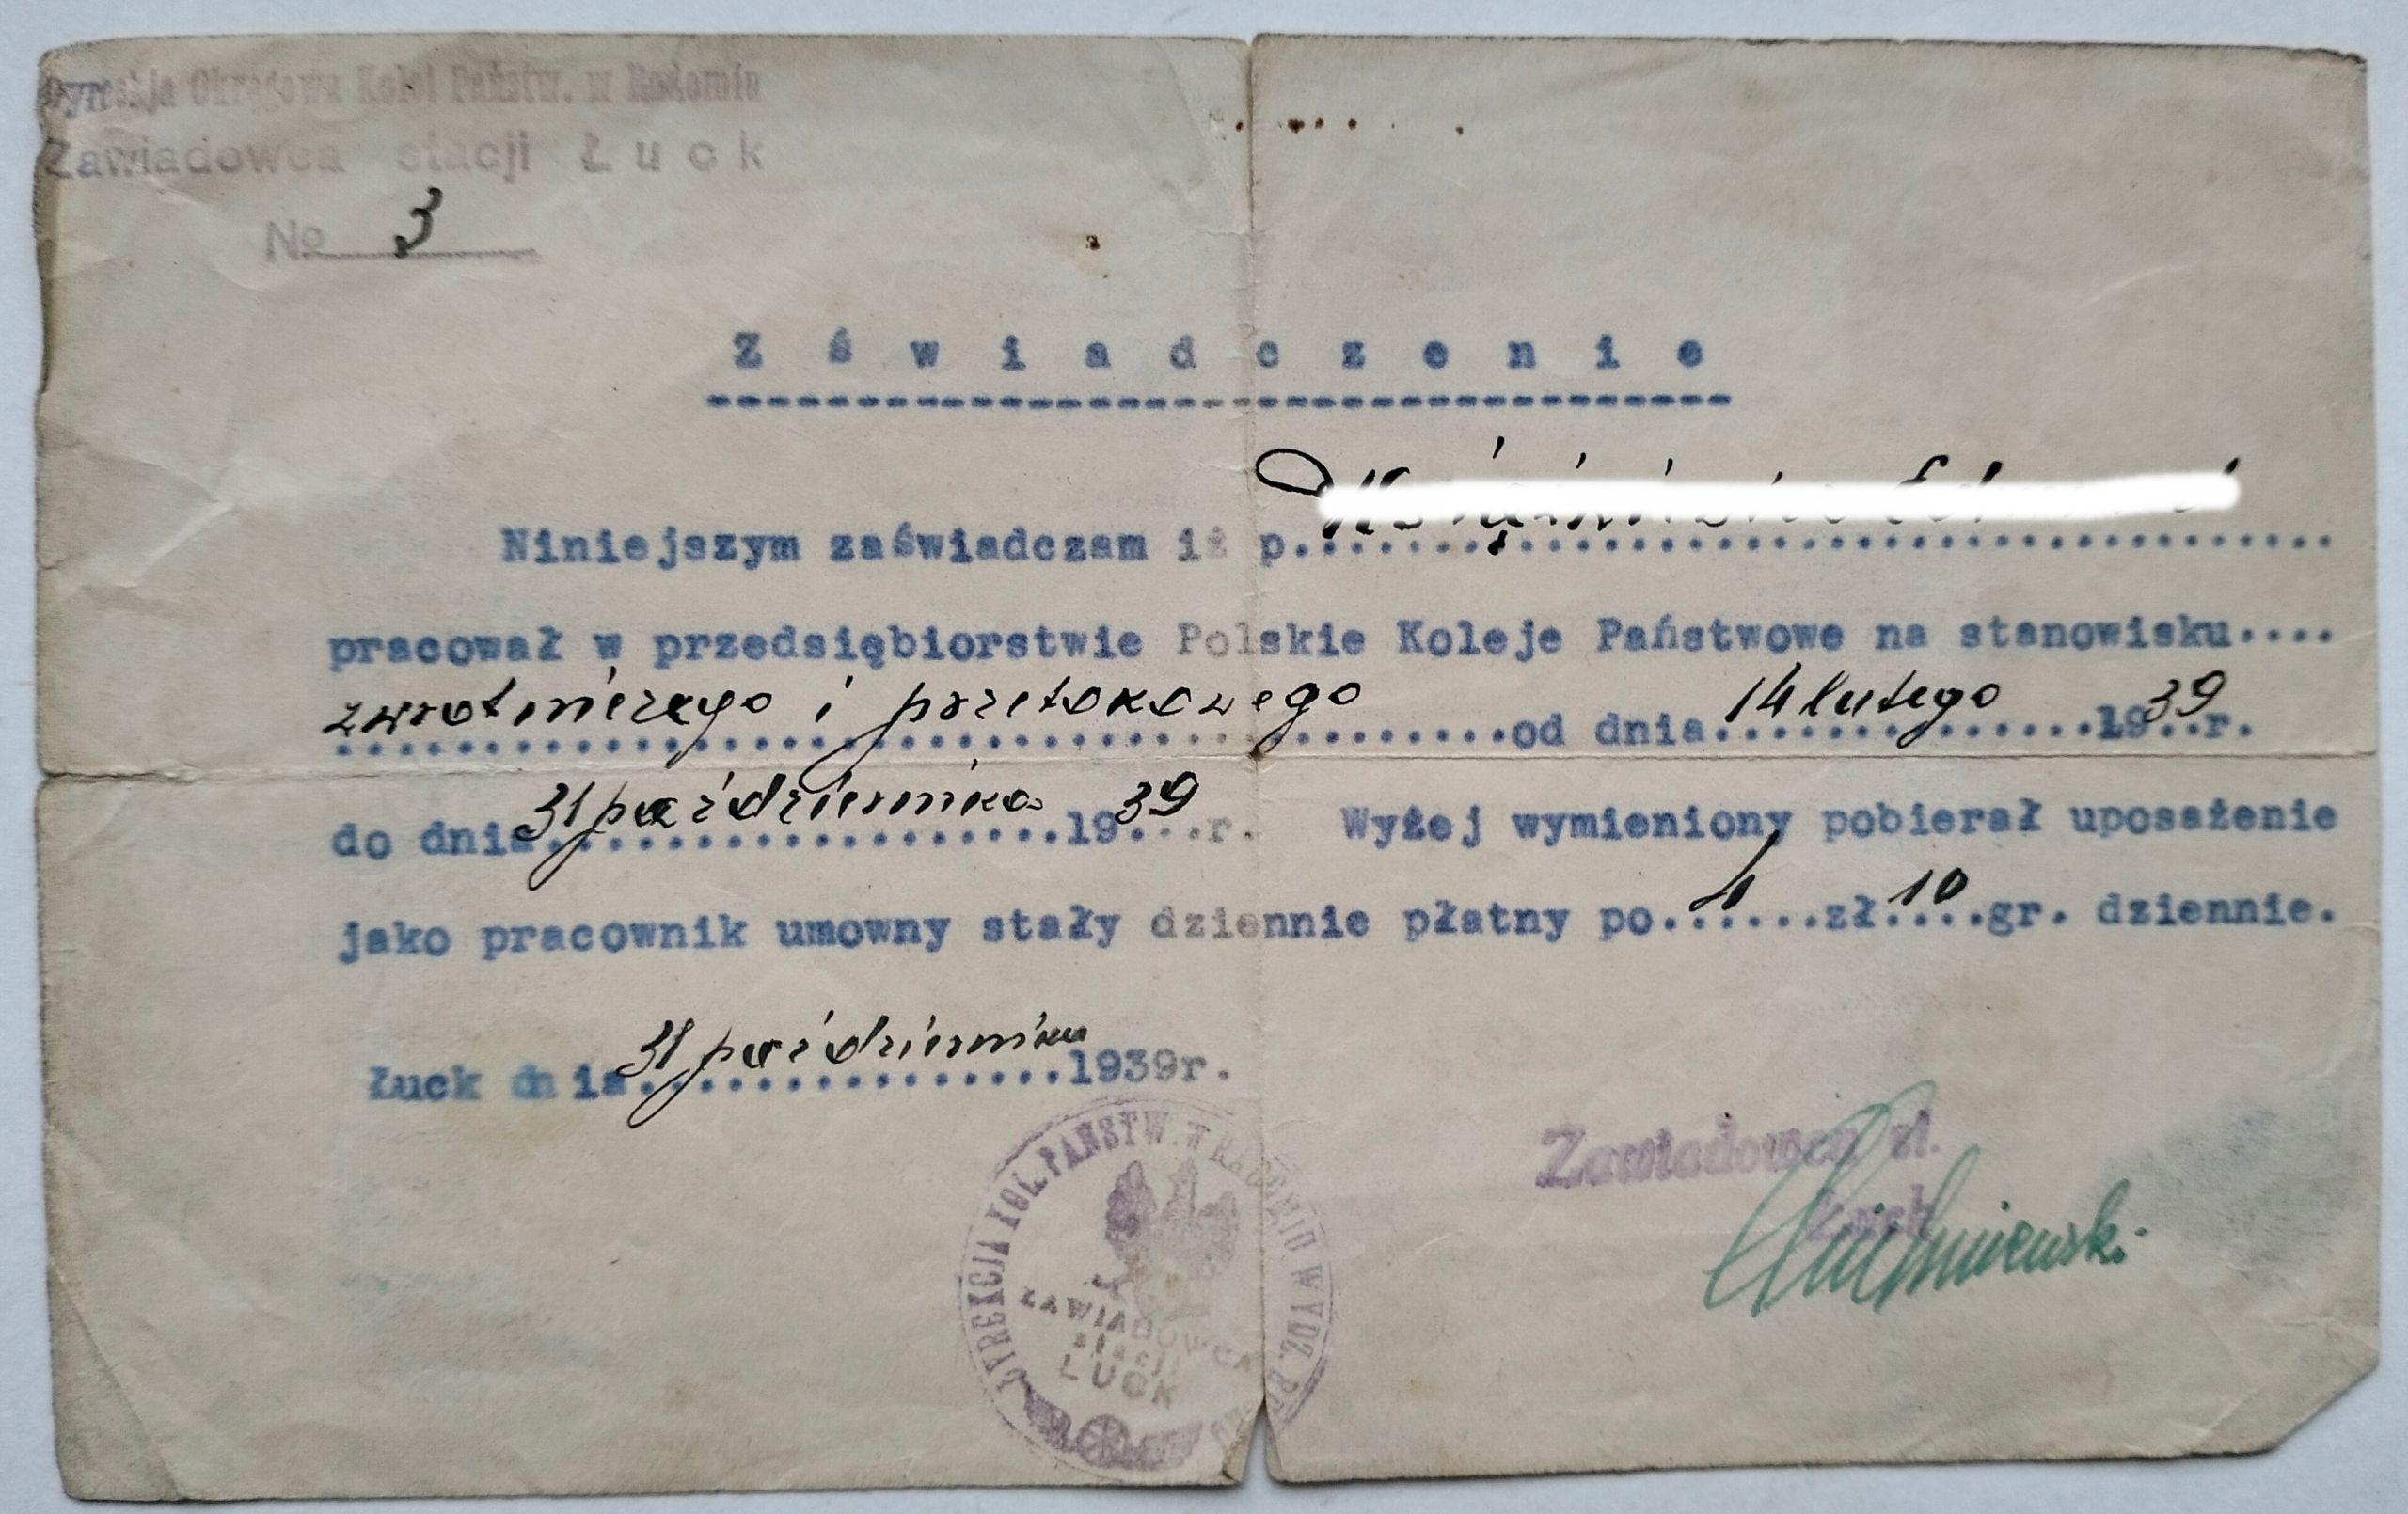 Dyrekcja Okręgowa Kolei Państw. w Radomiu
Zawiadowca stacji Łuck
No 3
Zświadczenie
Niniejszym zaświadczam iż p.
pracował w przedsiębiorstwie Polskie Koleje Państwowe na stanowisku....
zwrotniczego i przetokowego od dnia 14 lutego 1939 r.
do dnia 31 października 1939 r. Wyżej wymieniony pobierał uposażenie
jako pracownik umowny stały dziennie płatny po 4 zł 10 gr. dziennie.
Łuck dnia 31 października 1939r.
DYREKCJA KOL. PAŃSTW. W RADOMIU WYDZ.
ZAWIADOWCA
stacji
ŁUCK
Zawiadowca st.
Łuck